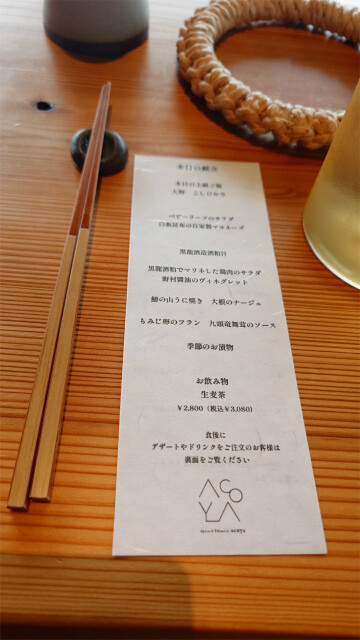 本日の献立
本日の土鍋ご飯
大野　こしひかり
ベビーリーフのサラダ
白板昆布の自家製マヨネーズ
黒龍酒造酒粕汁
黒龍酒粕でマリネした鶏肉のサラダ
野村醤油のヴィネグレット
鰆の山うに焼き　大根のナージュ
もみじ卵のフラン　九頭竜舞茸のソース
季節のお漬物
お飲み物
生麦茶
￥2,800（税込￥3,080）
食後に
デザートやドリンクをご注文のお客様は
裏面をご覧ください
ACOYA
acoya